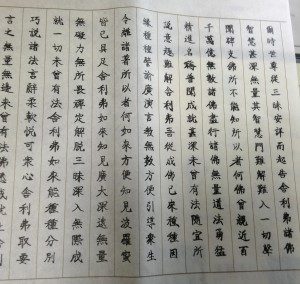 爾時世尊從三昧安詳而起告舍利弗諸佛
智慧甚深無量其智慧門難解難入一切聲
聞辟支佛所不能知所以者何佛曾親近百
千萬億無數諸佛盡行諸佛無量道法勇猛
精進名稱普聞成就甚深未曾有法隨宜所
說意趣難解舍利弗吾從成佛已來種種因
緣種種譬喻廣演言教無數方便引導眾生
令離諸著所以者何如來方便知見波羅蜜
皆已具足舍利弗如來知見廣大深遠無量
無礙力無所畏禪定解脫三昧深入無際成
就一切未曾有法舍利弗如來能種種分別
巧說諸法言辭柔軟悅可眾心舍利弗取要
言之無量無邊未曾有法佛悉成就止舍利